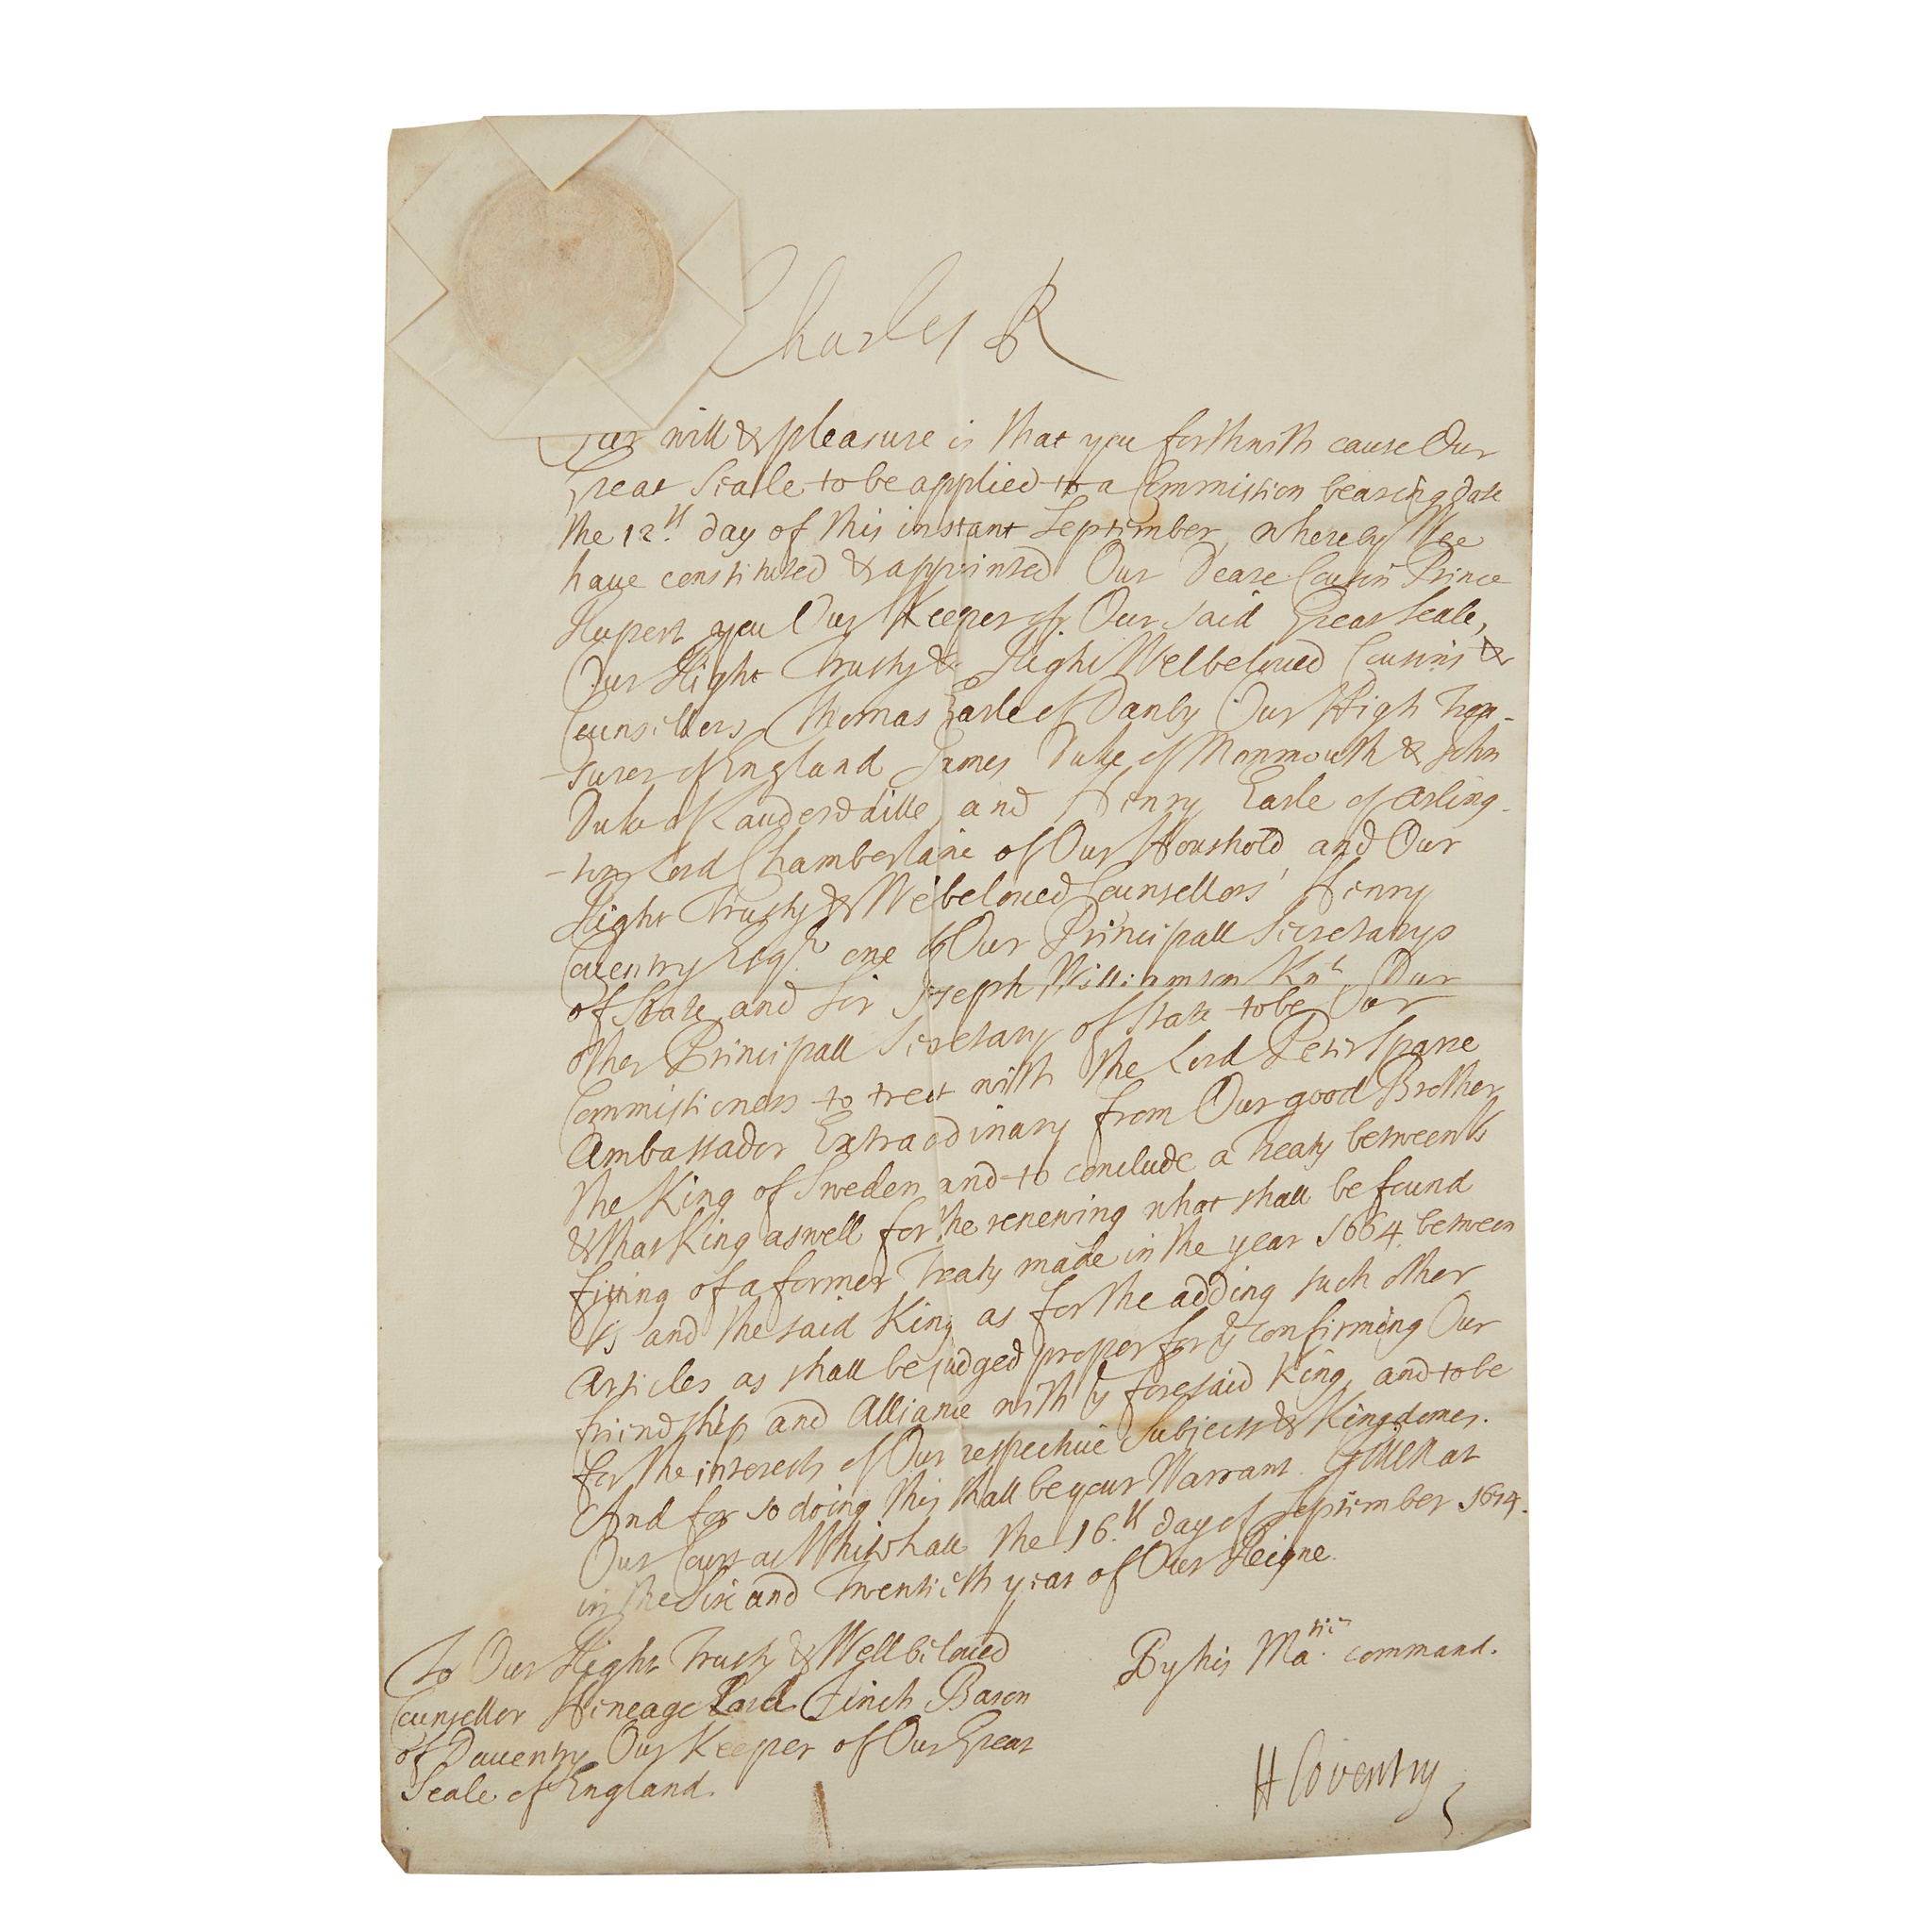 Charles R
Our will & pleasure is that you forthwith cause Our
Great Seale to be applied to a Commission bearing date
the 12.th day of this instant September, whereby Wee
have constituted & appointed Our Deare Cousin Prince
Rupert you Our Keeper of Our said Great Seale,
Our Right Trusty & Right Welbeloved Cousins &
Counsellors, Thomas Earle of Danby Our High Trea-
-surer of England James Duke of Monmouth & John
Duke of Lauderdaille, and Henry Earle of Arling-
-ton Lord Chamberlaine of Our Houshold and Our
Right Trusty & Welbeloued Counsellors Henry
Couentry Esq.r one of Our Principall Secretarys
of State and Sir Joseph Williamson Kn.t Our
other Principall Secretary of State to be Our
Commissioners to treat with the Lord Peter Sparre
Ambassador Extraodinary from Our good Brother
the King of Sweden and to conclude a Treaty between Us
& that King aswell for the renewing what shall be found
fitting of a former Treaty made in the year 1664. between
Us and the said King as for the adding such other
Articles as shall be judged proper for ye confirming Our
friendship and Alliance with ye foresaid King, and to be
for the interests of Our respectiue Subjects & Kingdomes.
And for so doing this shall be your Warrant. Giuen at
Our Court at Whitehall the 16.th day of September 1674.
in the Six and Twentieth year of Our Reigne.
To Our Right Trusty & Wellbeloued
Counsellor Heneage Lord Finch Baron
of Dauentry Our Keeper of Our Great
Seale of England.
By his Ma.ties command.
H Coventry